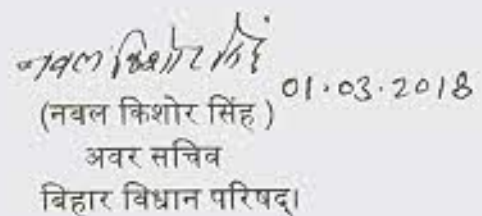 नवल किशोर सिंह
01.03.2018
(नबल किशोर सिंह )
अवर सचिव
बिहार विधान परिषद्।